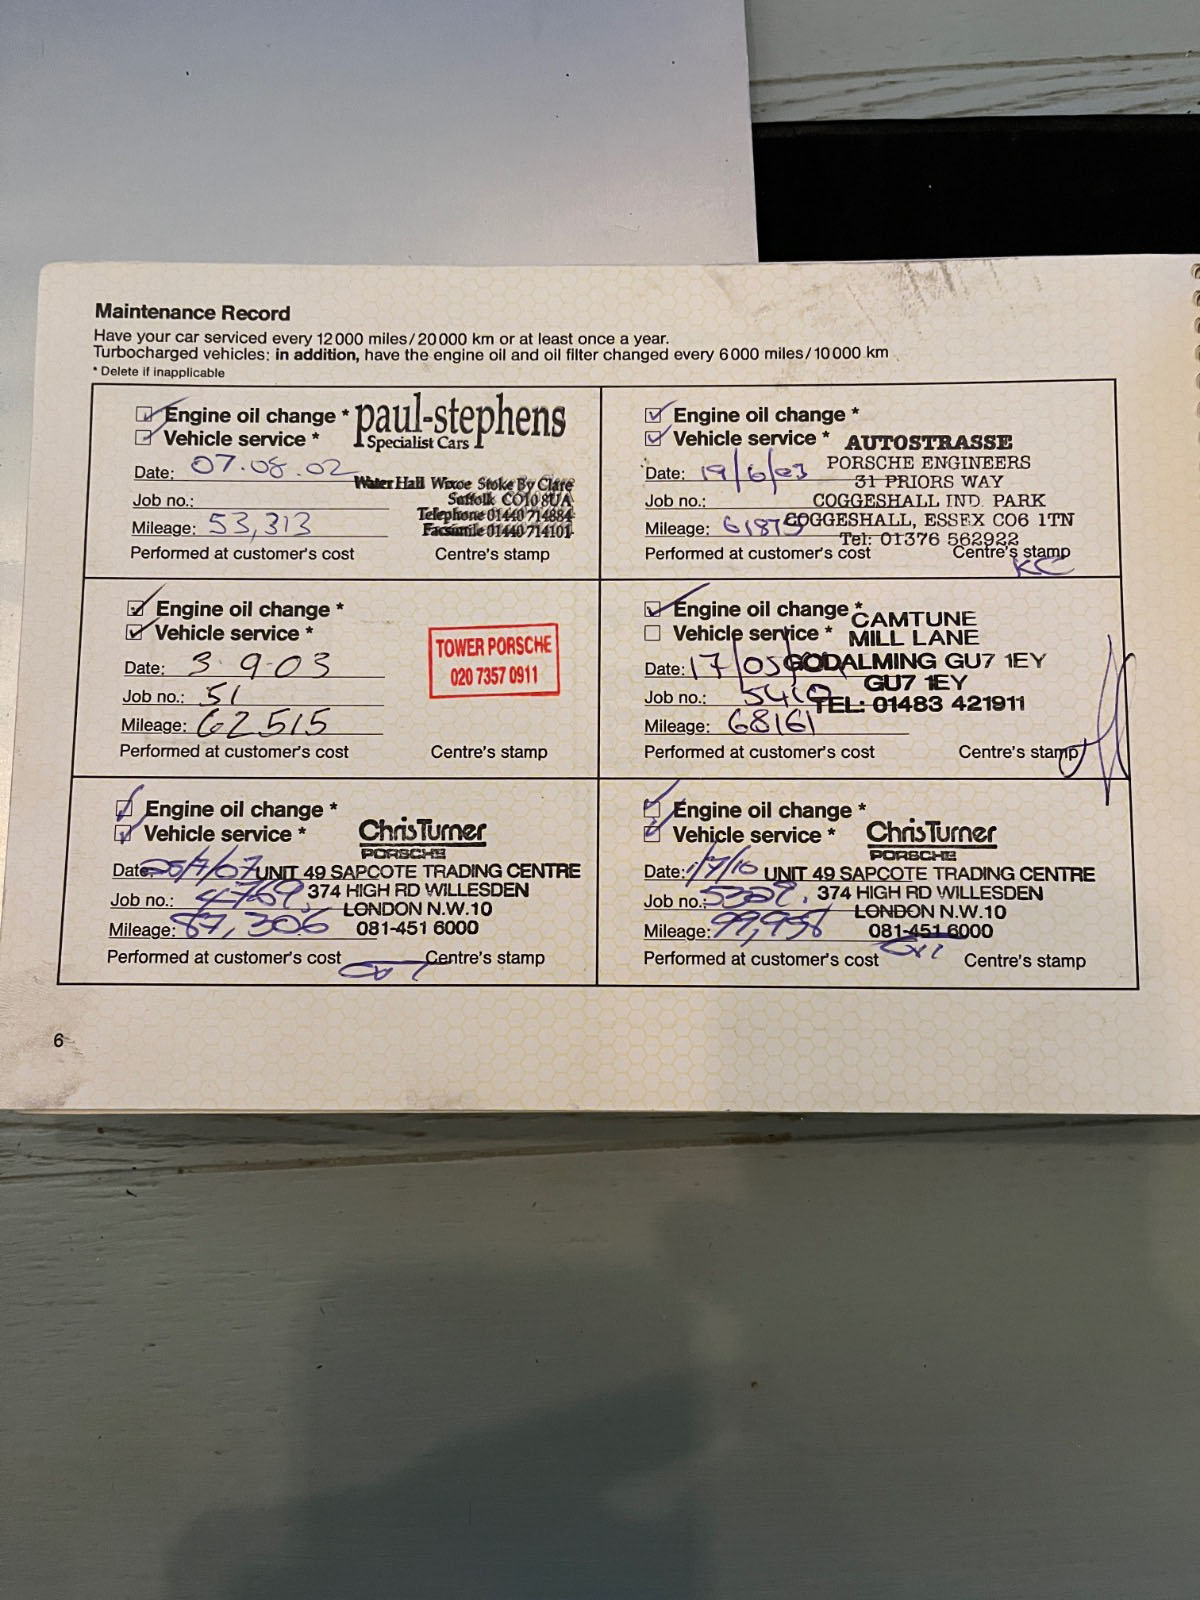 Maintenance Record
Have your car serviced every 12 000 miles/20 000 km or at least once a year.
Turbocharged vehicles: in addition, have the engine oil and oil filter changed every 6 000 miles/10 000 km
* Delete if inapplicable
Engine oil change *
Vehicle service *
paul-stephens
Specialist Cars
Date: 07.08.02
Water Hall Wixoe Stoke By Clare
Suffolk CO10 8UA
Job no.:
Telephone 01440 714884
Mileage: 53,313
Facsimile 01440 714101
Performed at customer's cost
Centre's stamp
Engine oil change *
Vehicle service *
AUTOSTRASSE
PORSCHE ENGINEERS
Date: 19/6/03
31 PRIORS WAY
Job no.:
COGGESHALL IND. PARK
Mileage:
COGGESHALL, ESSEX CO6 1TN
Tel: 01376 562922
Performed at customer's cost
Centre's stamp
KC
Engine oil change *
Vehicle service *
TOWER PORSCHE
020 7357 0911
Date: 3-9-03
Job no.: 51
Mileage: 62515
Performed at customer's cost
Centre's stamp
Engine oil change *
CAMTUNE
Vehicle service *
MILL LANE
Date: 17/05
GODALMING GU7 1EY
GU7 1EY
Job no.:
TEL: 01483 421911
Mileage: 68161
Performed at customer's cost
Centre's stamp
Engine oil change *
Vehicle service *
Chris Turner
PORSCHE
Date:
UNIT 49 SAPCOTE TRADING CENTRE
Job no.: 4769
374 HIGH RD WILLESDEN
LONDON N.W.10
Mileage: 87,306
081-451 6000
Performed at customer's cost
Centre's stamp
Engine oil change *
Vehicle service *
Chris Turner
PORSCHE
Date: 1/7/10
UNIT 49 SAPCOTE TRADING CENTRE
Job no.:
374 HIGH RD WILLESDEN
LONDON N.W.10
Mileage: 99,958
081-451 6000
Performed at customer's cost
Centre's stamp
6